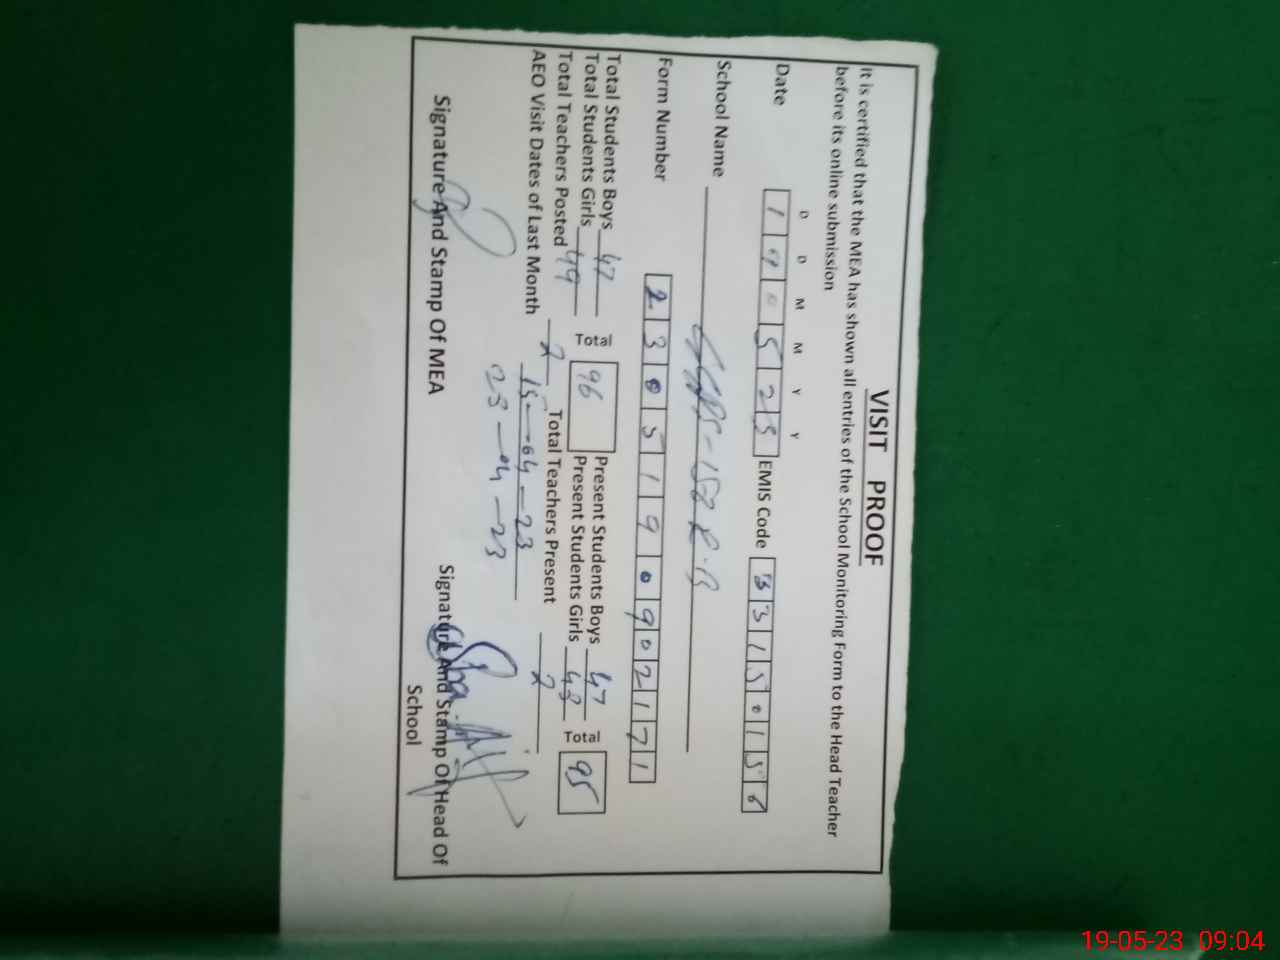 VISIT PROOF
It is certified that the MEA has shown all entries of the School Monitoring Form to the Head Teacher
before its online submission
D D M M Y Y
Date 1 9 0 5 2 3 EMIS Code 3 3 1 5 0 1 5 6
School Name GGPS-158 R.B
Form Number 2 3 0 5 1 9 0 9 0 2 1 7 1
Total Students Boys 47 Total 96 Present Students Boys 47 Total 95
Total Students Girls 49 Present Students Girls 48
Total Teachers Posted 2 Total Teachers Present 2
AEO Visit Dates of Last Month 15-04-23
23-04-23
Signature And Stamp Of MEA Signature And Stamp Of Head Of
School
19-05-23 09:04